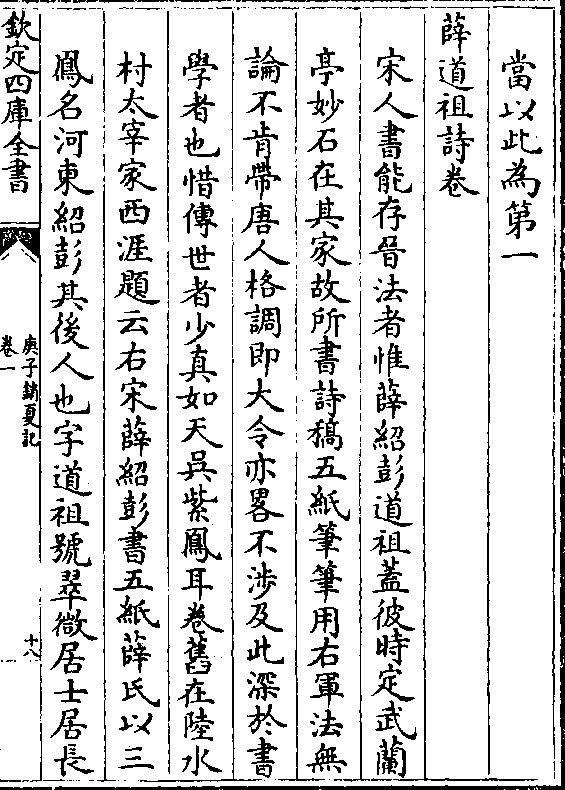 當以此為第一
薛道祖詩卷
宋人書能存晉法者惟薛紹彭道祖蓋彼時定武蘭
亭妙石在其家故所書詩稿五紙筆筆用右軍法無
論不肯帶唐人格調即大令亦畧不涉及此深於書
學者也惜傳世者少真如天吳紫鳳耳卷舊在陸水
村太宰家西涯題云右宋薛紹彭書五紙薛氏以三
鳳名河東紹彭其後人也字道祖號翠微居士居長
欽定四庫全書
庚子銷夏記
卷一
十八